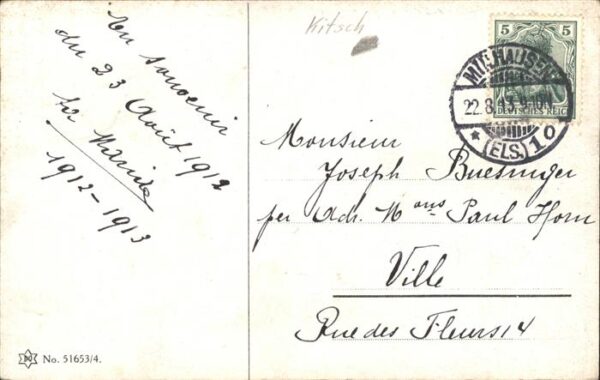 Kitsch
En souvenir
du 23 Août 1912
ta
1912-1913
5 5
DEUTSCHES REICH
MÜLHAUSEN
22.8.13.9-10N
* (ELS.) 1 o
Monsieur
Joseph Buesinger
per Adr. Mons Paul Horn
Ville
Rue des Fleurs 14
No. 51653/4.